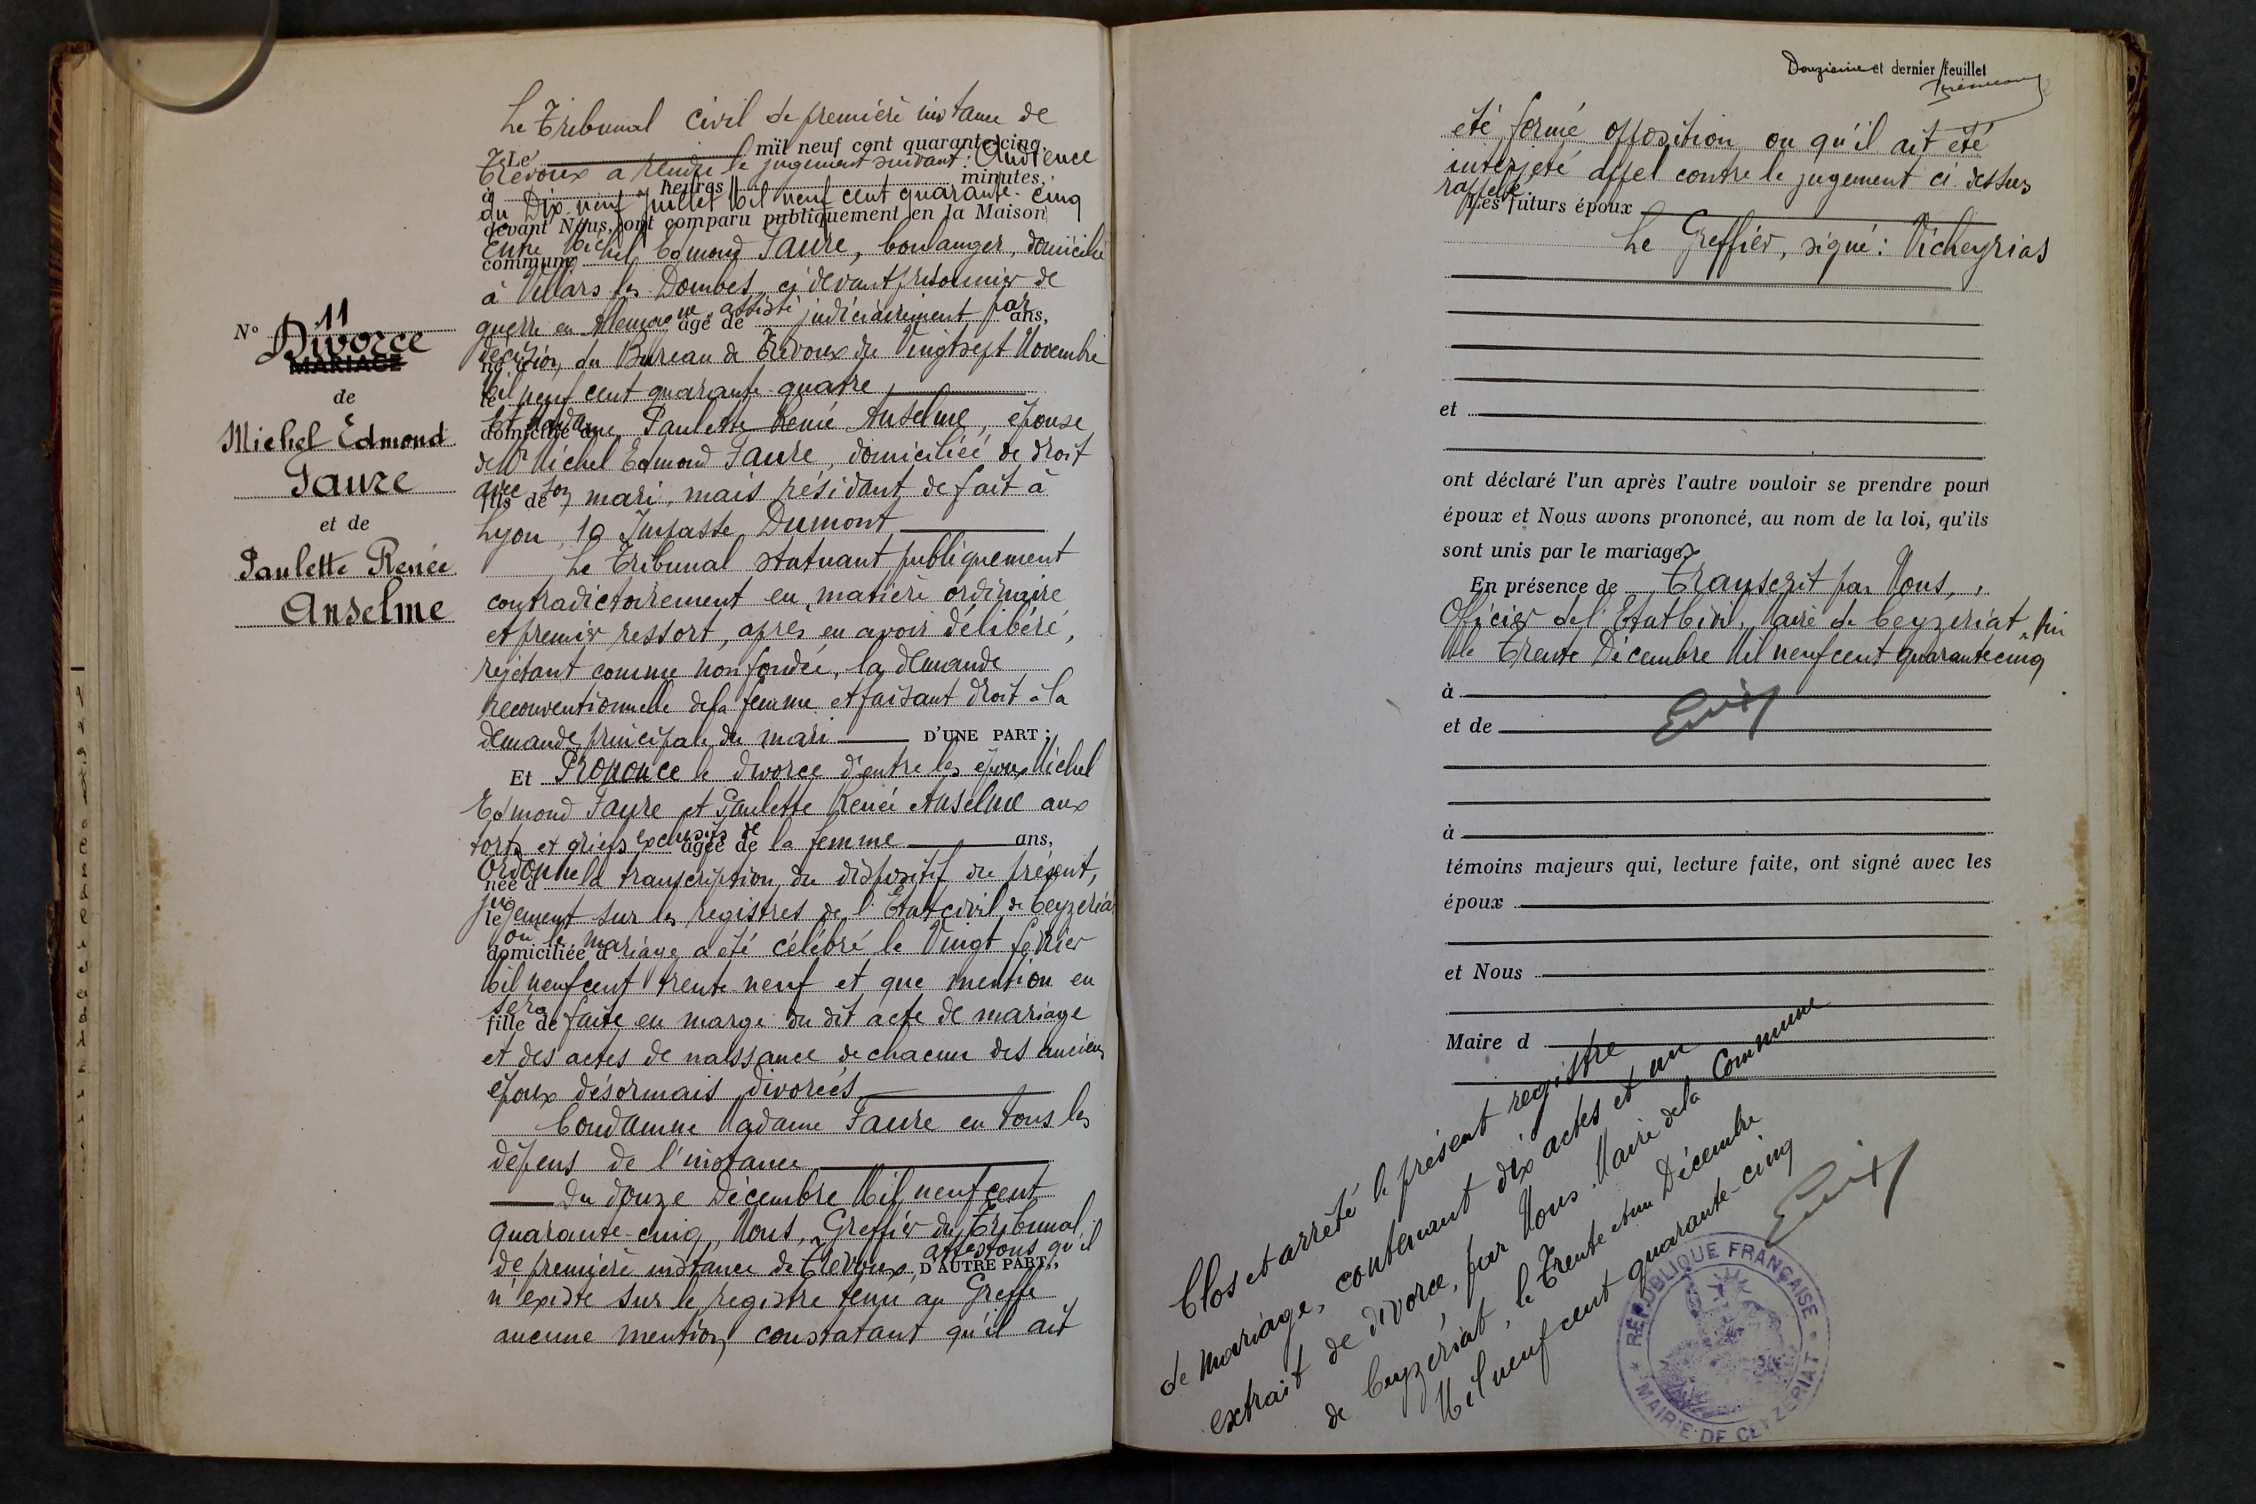 N° 11
Divorce
MARIAGE
de
Michel Edmond
Faure
et de
Paulette Renée
Anselme
Le Tribunal civil de première instance de
Le mil neuf cent quarante-cinq,
Trévoux a rendu le jugement suivant : Audience
à heures minutes,
du Dix-neuf Juillet Mil neuf cent quarante-cinq
devant Nous, ont comparu publiquement en la Maison
Entre Michel Edmond Faure, boulanger, domicilié
commune
à Villars les Dombes, ci devant prisonnier de
guerre en Allemagne, assisté judiciairement par
âgé de ans,
décision du Bureau de Trévoux du Vingt sept Novembre
né à
Mil neuf cent quarante quatre
le
Et Madame Paulette Renée Anselme, épouse
domicilié à
de Mr Michel Edmond Faure, domiciliée de droit
avec son mari, mais résidant de fait à
fils de
Lyon, 10 Impasse Dumont
Le Tribunal statuant publiquement
contradictoirement en matière ordinaire
et premier ressort, après en avoir délibéré,
rejetant comme non fondée, la demande
reconventionnelle de la femme et faisant droit à la
demande principale du mari D'UNE PART ;
Et Prononce le divorce d'entre les époux Michel
Edmond Faure et Paulette Renée Anselme aux
torts et griefs exclusifs de la femme
âgée de ans,
Ordonne la transcription du dispositif du présent,
née à
jugement sur les registres de l'Etat civil de Ceyzériat
le
où le mariage a été célébré le Vingt février
domiciliée à
Mil neuf cent trente neuf et que mention en
sera faite en marge du dit acte de mariage
fille de
et des actes de naissance de chacun des anciens
époux désormais divorcés
Condamne Madame Faure en tous les
dépens de l'instance
Du douze Décembre Mil neuf cent
quarante-cinq, Nous, Greffier du Tribunal
de première instance de Trévoux, attestons qu'il
D'AUTRE PART ;
n'existe sur le registre tenu au Greffe
aucune mention constatant qu'il ait
Douzième et dernier feuillet
été formé opposition ou qu'il ait été
interjeté appel contre le jugement ci dessus
rappelé.
Les futurs époux
Le Greffier, signé : Vicheyrias
et
ont déclaré l'un après l'autre vouloir se prendre pour
époux et Nous avons prononcé, au nom de la loi, qu'ils
sont unis par le mariage.
En présence de Transcrit par Nous,
Officier de l'Etat Civil, Maire de Ceyzeriat, Ain
le Trente Décembre Mil neuf cent quarante cinq
à
et de
à
témoins majeurs qui, lecture faite, ont signé avec les
époux
et Nous
Maire d
Clos et arrêté le présent registre
de mariage, contenant dix actes et un
extrait de divorce, par Nous. Maire de la Commune
de Ceyzériat, le Trente et un Décembre
Mil neuf cent quarante-cinq
RÉPUBLIQUE FRANÇAISE
MAIRIE DE CEYZERIAT